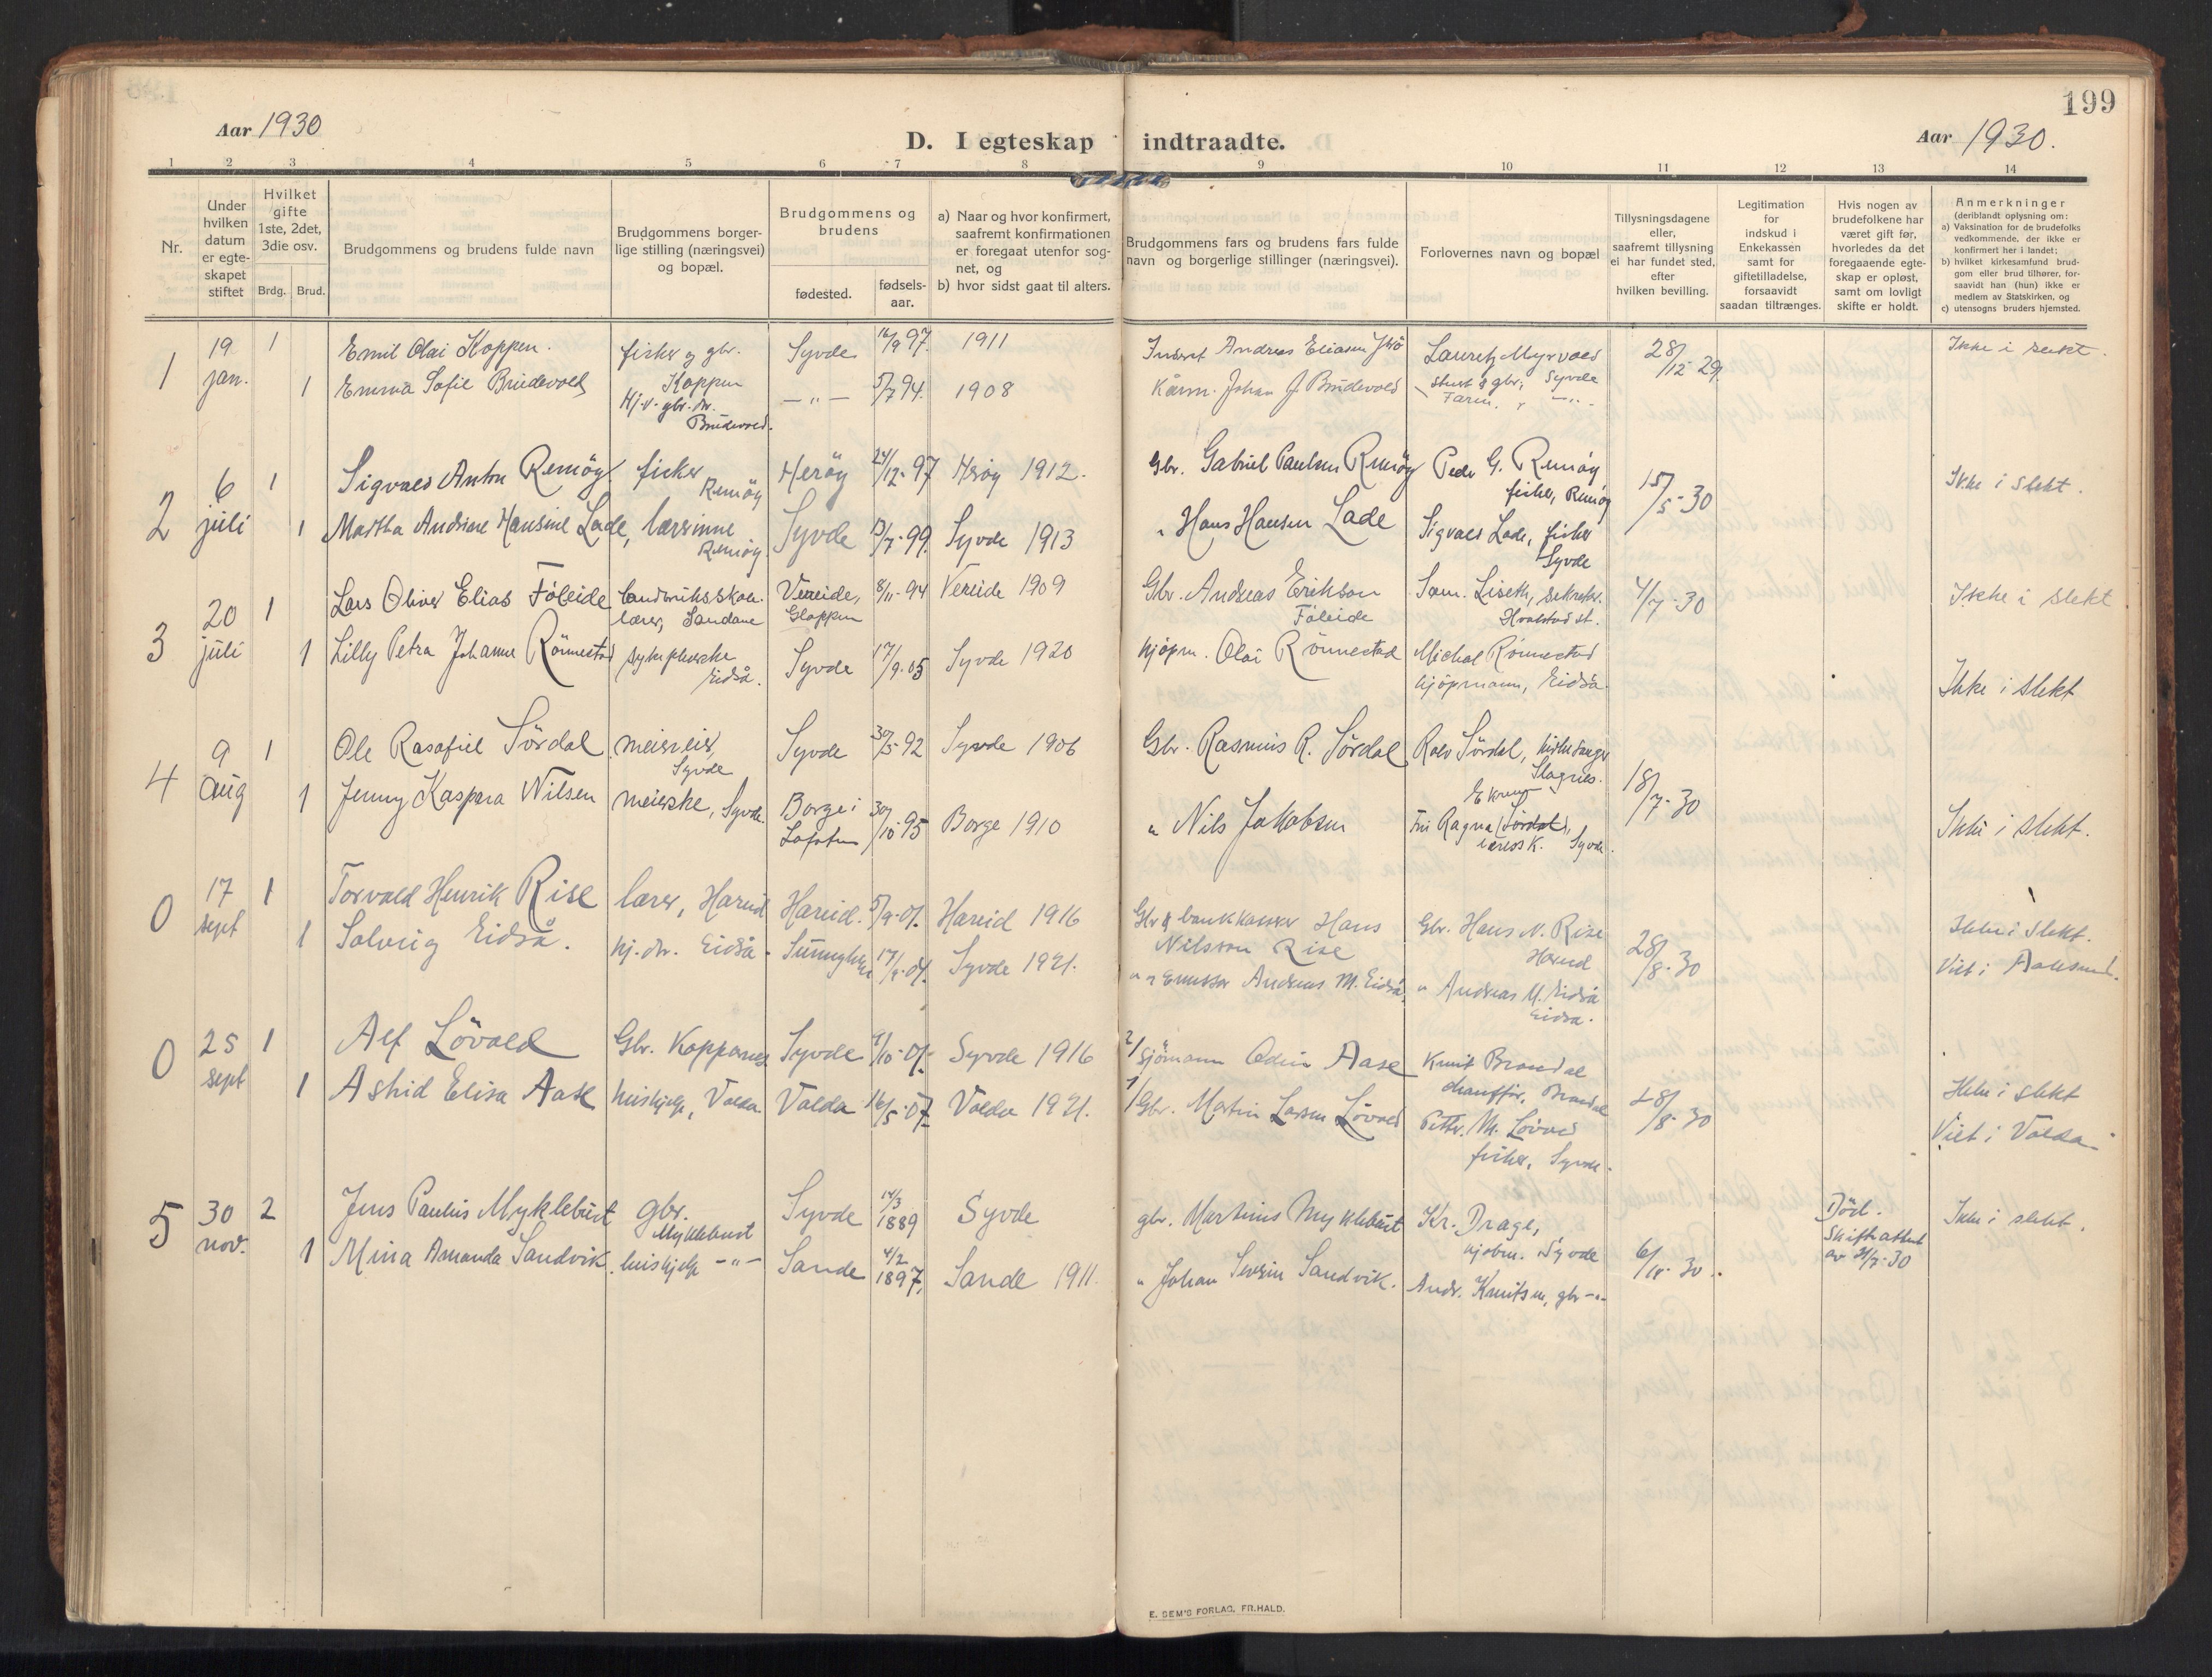 199
Aar 1930
D. I egteskap indtraadte.
Aar 1930.
1 2 3 4 5 6 7 8 9 10 11 12 13 14
Nr.
Under hvilken datum er egte-skapet stiftet
Hvilket gifte 1ste, 2det, 3die osv.
Brdg. Brud.
Brudgommens og brudens fulde navn
Brudgommens borger-lige stilling (næringsvei) og bopæl.
Brudgommens og brudens
fødested.
fødsels-aar.
a) Naar og hvor konfirmert, saafremt konfirmationen er foregaat utenfor sog-net, og
b) hvor sidst gaat til alters.
Brudgommens fars og brudens fars fulde navn og borgerlige stillinger (næringsvei).
Forlovernes navn og bopæl
Tillysningsdagene eller, saafremt tillysning ei har fundet sted, efter hvilken bevilling.
Legitimation for indskud i Enkekassen samt for giftetilladelse, forsaavidt saadan tiltrænges.
Hvis nogen av brudefolkene har været gift før, hvorledes da det foregaaende egte-skap er opløst, samt om lovligt skifte er holdt.
Anmerkninger
(deriblandt oplysning om:
a) Vaksination for de brudefolks vedkommende, der ikke er konfirmert her i landet;
b) hvilket kirkesamfund brud-gom eller brud tilhører, for-saavidt han (hun) ikke er medlem av Statskirken, og
c) utensogns bruders hjemsted.
1 19 jan. 1 Emil Olai Koppen. fisker og gbr. Koppen Syvde 16/9 97. 1911 Andreas Eliasen Lauretz Myrvold gbr. Syvde 28/12 29. Ikke i slekt.
1 Emma Sofie Brudevold Hj. v. gbr. dr. Brudevold. —"— 5/7 94. 1908 Kårm. Johan J. Brudevold
2 6 juli 1 Sigvald Anton Remøy fisker Remöy Heröy 24/12-97 Herøy 1912. Gbr. Gabriel Paulsen Remöy Peder G. Remöy fisker, Remöy 15/5-30 Ikke i slekt.
1 Martha Andrine Hansine Lade, lærerinne Remöy. Syvde 13/7-99. Syvde 1913 " Hans Hansen Lade Sigvald Lade, fisker Syvde
3 20 juli 1 Lars Oliver Elias Föleide landbruksskole-lærer, Sandane Vereide, Gloppen 8/11-94 Vereide 1909 Gbr. Andreas Erikson Föleide Sam. Liseth, sekretær. 4/7-30 Ikke i slekt
1 Lilly Petra Johanne Rönnestad sykepleierske Eidså. Syvde 17/9.05 Syvde 1920 kjøpm. Olai Rönnestad Michal Rönnestad kjöpmann, Eidså. Ikke i slekt
4 9 aug 1 Ole Rasafiel Sördal meierieier, Syvde Syvde 30/5-92 Syvde 1906 Gbr. Rasmus R. Sördal Rolv Sördal, kirkesanger Slagnes. 18/7-30
1 Jenny Kaspara Nilsen meierske, Syvde. Borge i Lofoten 30/10-95 Borge 1910 " Nils Jakobsen Frk. Ragna Sördal, Syvde. Ikke i slekt.
0 17 sept 1 Torvald Henrik Rise lærer, Hareid Hareid. 5/9-01. Hareid 1916 Gbr & bankkasser Hans Nilsson Rise Gbr. Hans N. Rise Hareid 28/8-30 Ikke i slekt.
1 Solveig Eidså. hj. dr. Eidså - 17/9-07. Syvde 1921. Andreas M. Eidså. " Andreas M. Eidså Eidså. Viet i Aalesund.
0 25 sept 1 Alf Lövold Gbr. Koppanes Syvde 9/10-01- Syvde 1916 2/ Sjömann Odin Aase Knut Brandal chauffør, Brandal 28/8-30 Ikke i slekt
1 Astrid Elisa Aase hushjelp, Volda Volda 16/5-07 Volda 1921. 1/ Gbr. Martin Larsen Lövold Petter M. Lövold fisker, Syvde. Viet i Volda
5 30 nov. 2 Jens Paulus Myklebust gbr. Myklebust Syvde 14/3 1889 Syvde gbr. Martinus Myklebust Kr. Drage, kjøbm. Syvde 6/11-30. Död. Skifteattest av 21/7-30 Ikke i slekt.
1 Mina Amanda Sandvik. hushjelp —"— Sande 4/2 1897, Sande 1911. " Johan Severin Sandvik. Andr. Knutsen, gbr —"—
E. SEM'S FORLAG, FR.HALD.